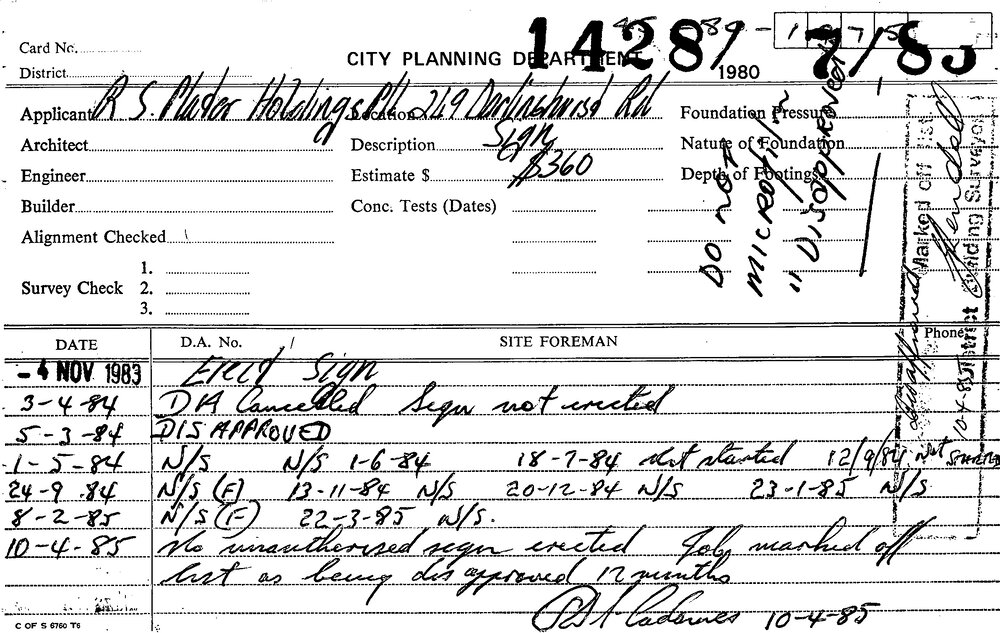 Card No.
14287/83
CITY PLANNING DEPARTMENT
1980
District
Applicant R S. Holdings P/L Location 249 Darlinghurst Rd Foundation Pressure
Architect Description Sign Nature of Foundation
Engineer Estimate $ $360 Depth of Footings
Builder Conc. Tests (Dates)
Alignment Checked
1.
Survey Check 2.
3.
DO NOT
MICROFILM
"DISAPPROVED"
Disapproved Marked off list
10-4-85 District Building Surveyor
DATE D.A. No. SITE FOREMAN Phone
- 4 NOV 1983 Erect Sign
3-4-84 DA Cancelled Sign not erected
5-3-84 DISAPPROVED
1-5-84 N/S N/S 1-6-84 18-7-84 Not started 12/9/84 Not Started
24-9-84 N/S (F) 13-11-84 N/S 20-12-84 N/S 23-1-85 N/S
8-2-85 N/S (F) 22-3-85 N/S.
10-4-85 No unauthorised sign erected Job marked off
list as being disapproved 12 months
10-4-85
C OF S 6760 T6